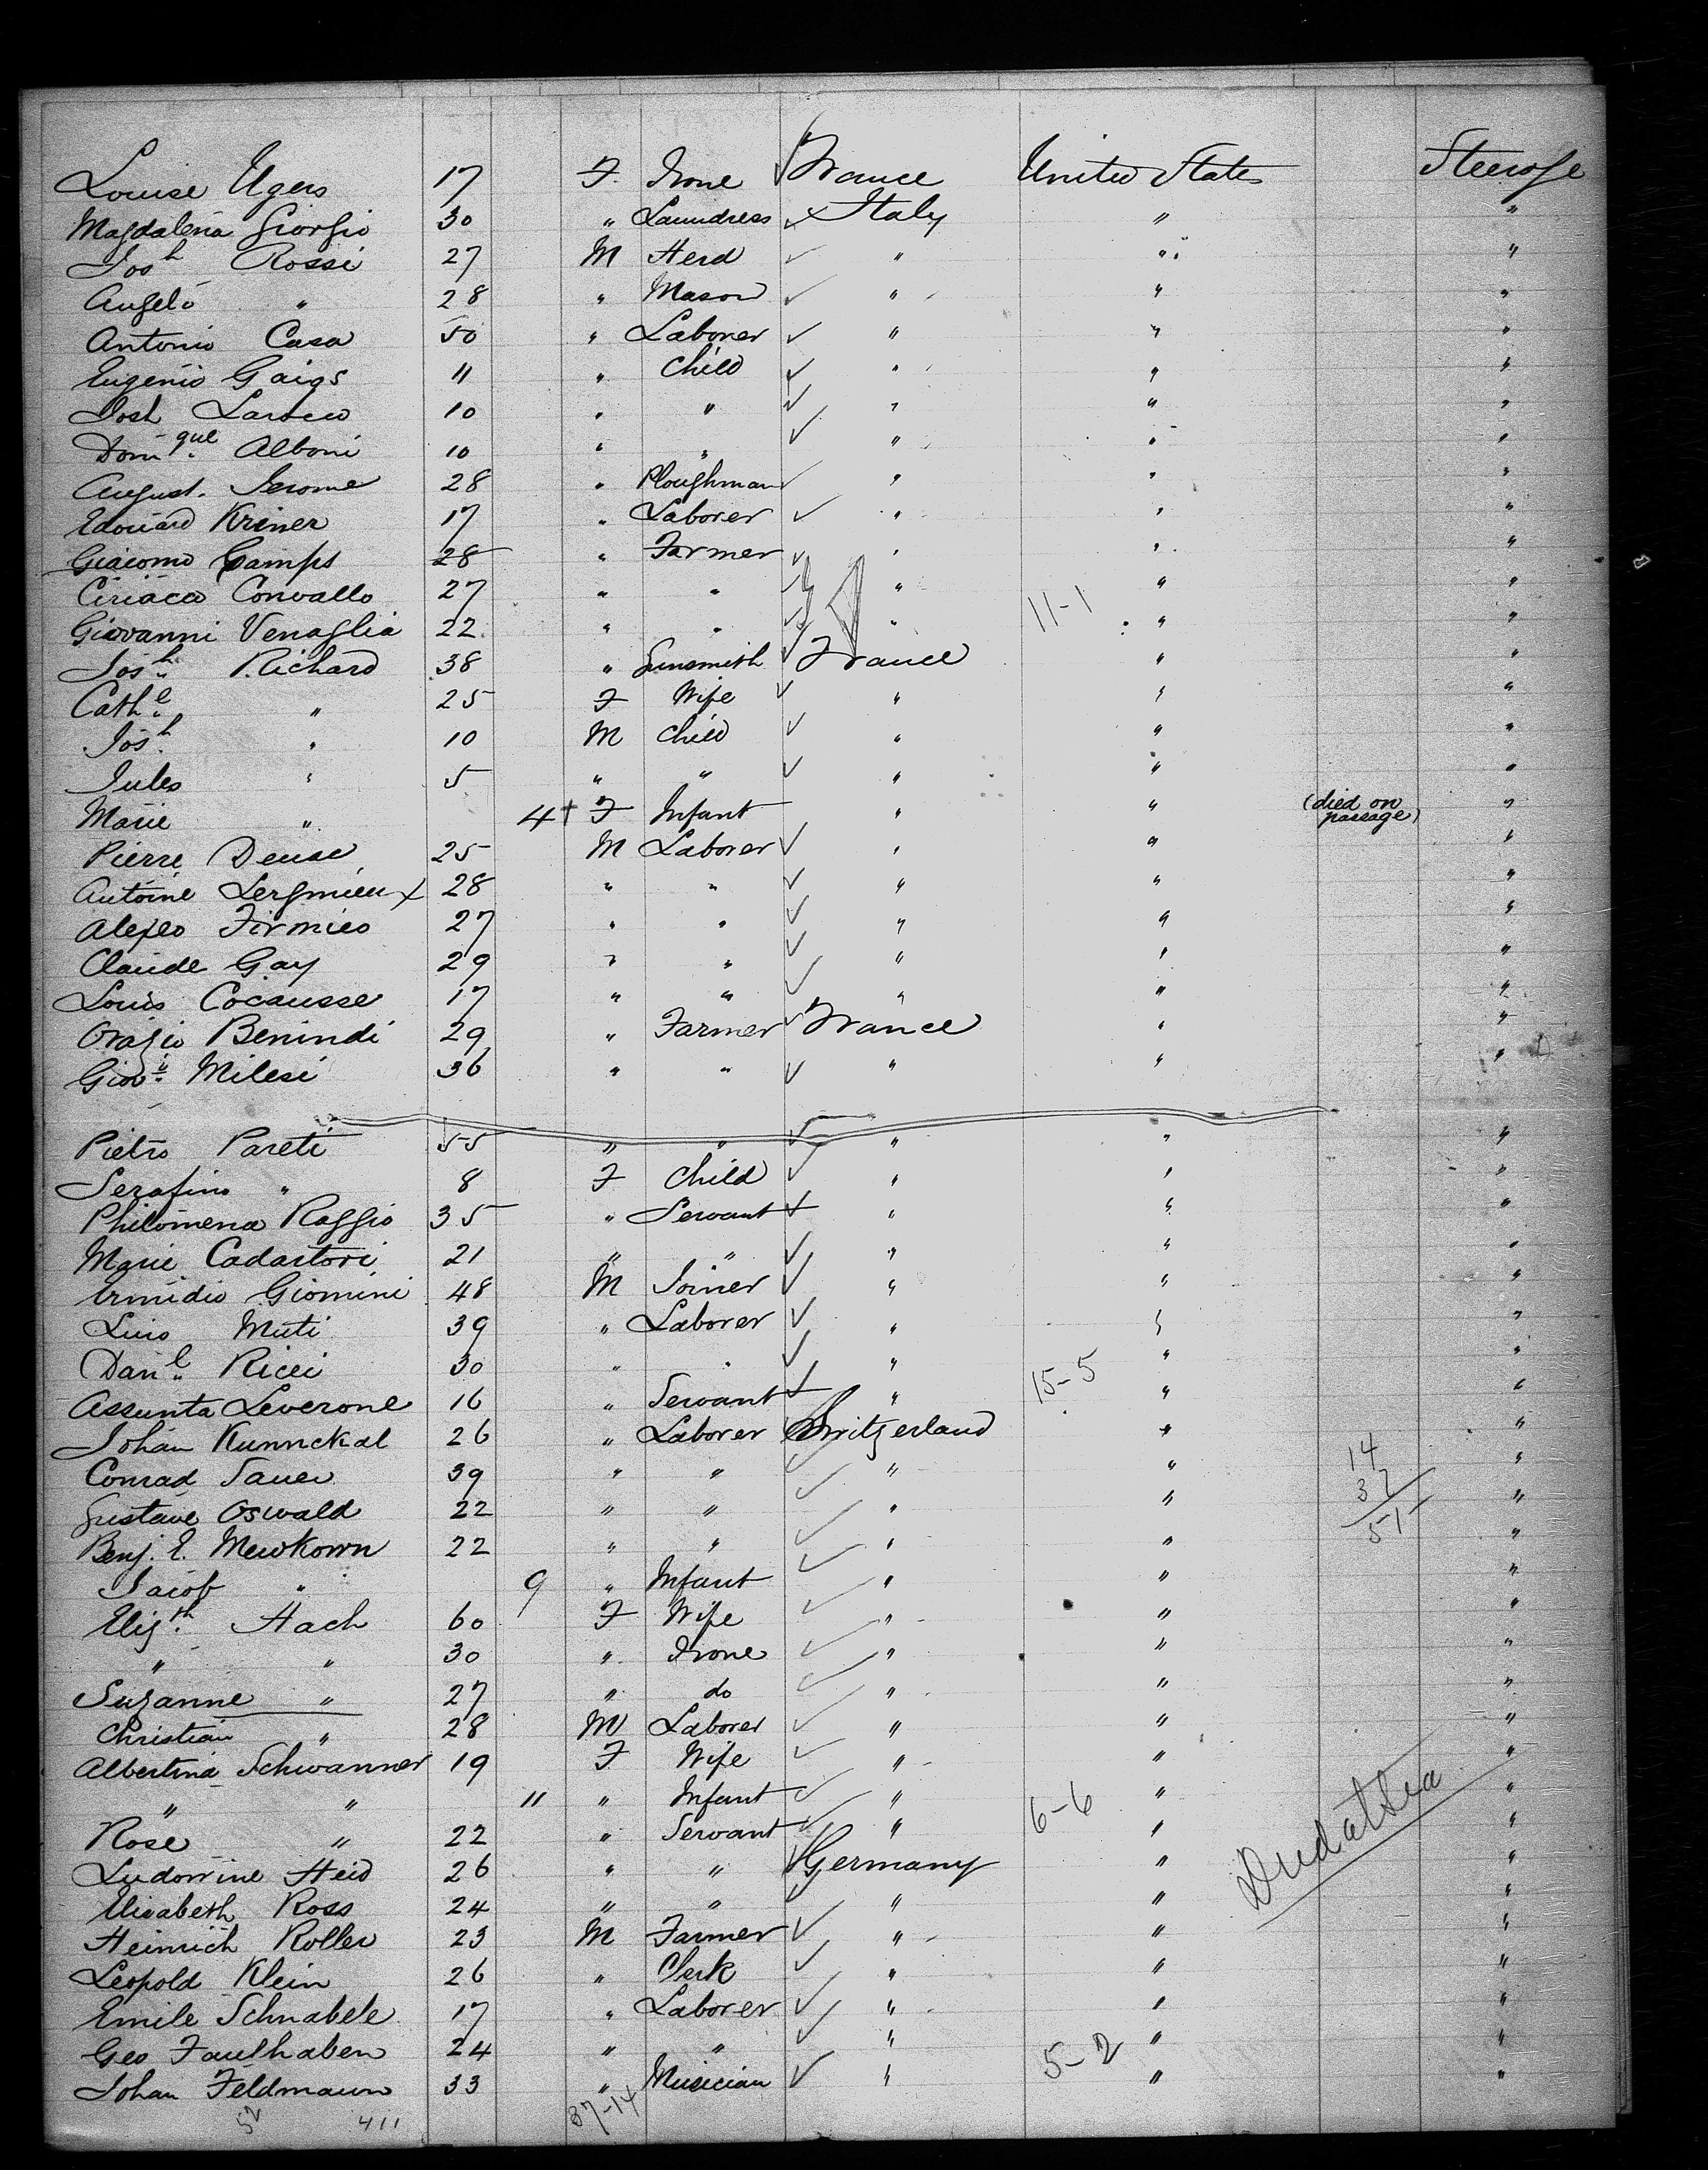 Louise Ugers 17 F. None France United States Steerage
Magdalena Giorgio 30 " Laundress Italy " "
Josh Rossi 27 M Herd " " "
Angelo " 28 " Mason " " "
Antonio Casa 50 " Laborer " " "
Eugenio Gaigs 11 " Child " " "
Josh Larocco 10 " " " " "
Domque Alboni 10 " " " " "
August. Jerome 28 " Ploughman " " "
Edouard Kriner 17 " Laborer " " "
Giacomo Camps 28 " Farmer " " "
Ciriaco Convallo 27 " " " " "
Giovanni Venaglia 22 " " " 11-1 " "
Josh Richard 38 " Gunsmith France " "
Cathe " 25 F Wife " " "
Josh " 10 M Child " " "
Jules " 5 " " " " "
Marie " 4 + F Infant " " (died on passage) "
Pierre Deuse 25 M Laborer " " "
Antoine 28 " " " " "
Firmieo 27 " " " " "
Claude Gay 29 " " " " "
Louis Cocausse 17 " " " " "
Orazio Benindi 29 " Farmer France " "
Giovi Milesi 36 " " " " "
Pietro Pareti 55 " " " " "
Serafino " 8 F Child " " "
Philomena Raggio 35 " Servant " " "
Marie Cadartori 21 " " " " "
Ermidio Giomini 48 M Joiner " " "
Luis Muti 39 " Laborer " " "
Danl Ricci 30 " " " " "
Assunta Leverone 16 " Servant " 15-5 " "
Johan Kunnckal 26 " Laborer Switzerland " "
Conrad Sauer 39 " " " " 14 "
Gustave Oswald 22 " " " " 37 "
Benj. E. Mewkown 22 " " " " 51 "
Jacob " 9 " Infant " " "
Elizth Hach 60 F Wife " " "
" " 30 " None " " "
Suzanne " 27 " do " " "
Christian " 28 M Laborer " " "
Albertina Schwanner 19 F Wife " " "
" " 11 " Infant " 6-6 " "
Rose " 22 " Servant " " "
Ludovine Heid 26 " " Germany " "
Elisabeth Ross 24 " " " " "
Died at Sea
Heinrich Roller 23 M Farmer " " "
Leopold Klein 26 " Clerk " " "
Emile Schnabele 17 " Laborer " " "
Geo Faulhaben 24 " " " 5-2 " "
Johan Feldmann 33 " Musician " " "
52 411 37-14